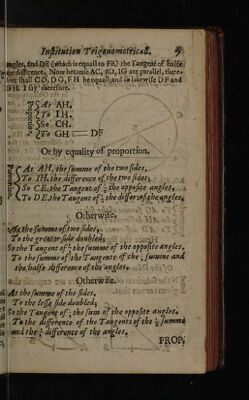 Institution Trigonometricall.
angles, and DE (which is equall to FB) the Tangent of halfe
the difference. Now because AC, FD, IG are parallel, there-
fore shall CD, DG, FH be equall, and so likewise DF and
GH. I say therefore.
As AH.
To IH.
So CH.
To GH = DF
Or by equality of proportion.
As AH, the summe of the two sides,
To IH, the difference of the two sides;
So CE, the Tangent of ½ the opposite angles,
To DE, the Tangent of ½ the differ. of the angles.
Otherwise.
As the summe of two sides,
To the greater side doubled;
So the Tangent of ½ the summe of the opposite angles,
To the summe of the Tangents of the ½ summe and
the halfe difference of the angles.
Otherwise.
As the summe of the sides,
To the lesse side doubled;
So the Tangent of ½ the sum of the opposite angles,
To the difference of the Tangents of the ½ summe
and the ½ difference of the angles.
PROP.